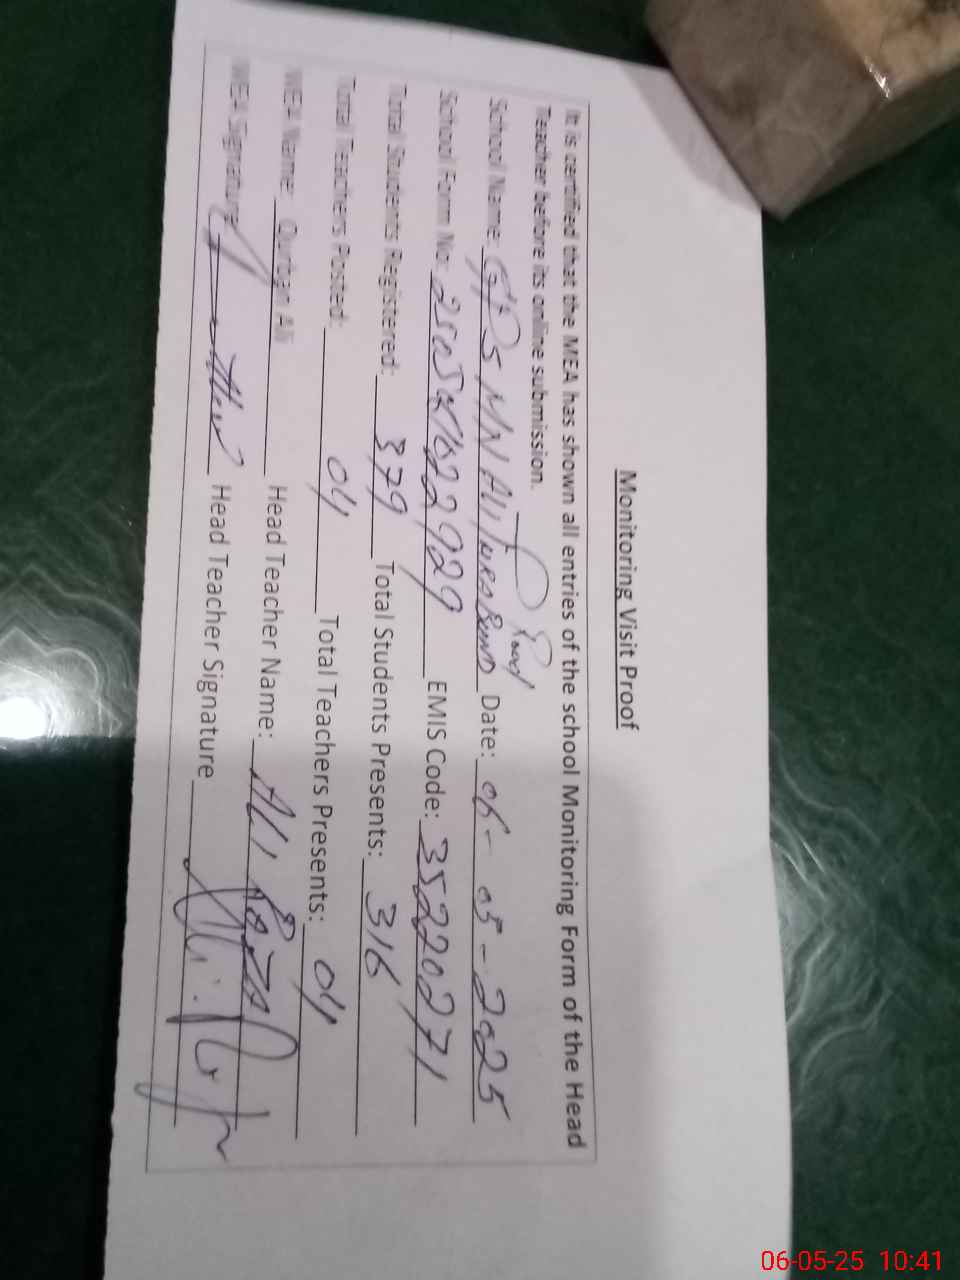 Monitoring Visit Proof
It is certified that the MEA has shown all entries of the school Monitoring Form of the Head
Teacher before its online submission.
Road
School Name: GPS MN Ali Date: 06-05-2025
School Form No: EMIS Code: 35220271
Total Students Registered: 379 Total Students Presents: 316
Total Teachers Posted: 04 Total Teachers Presents: 04
MEA Name: Qurban Ali Head Teacher Name: ALI RAZA
MEA Signature Head Teacher Signature
06-05-25 10:41